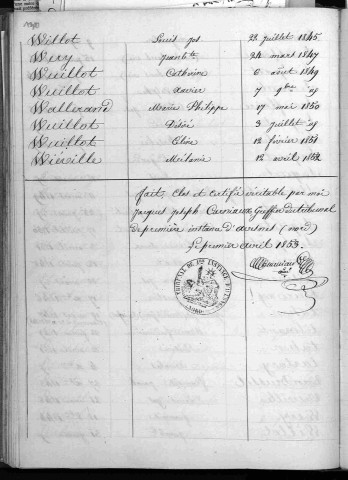 Willot Louis jos 22 juillet 1845
Wery jeanbte 24 mars 1847
Wuillot Catherine 6 août 1849
Wuillot Xavier 7 9bre id
Wallerand Marie Philippe 17 mai 1850
Wuillot Désiré 3 juillet id
Wuillot Elvire 12 février 1851
Wiéville Mélanie 12 avril 1852
fait, Clos et certifié véritable par moi
jacques joseph Carniaux Greffier du tribunal
de première instance d'avesnes (nord)
Le premier avril 1853.
TRIBUNAL DE 1re INSTANCE